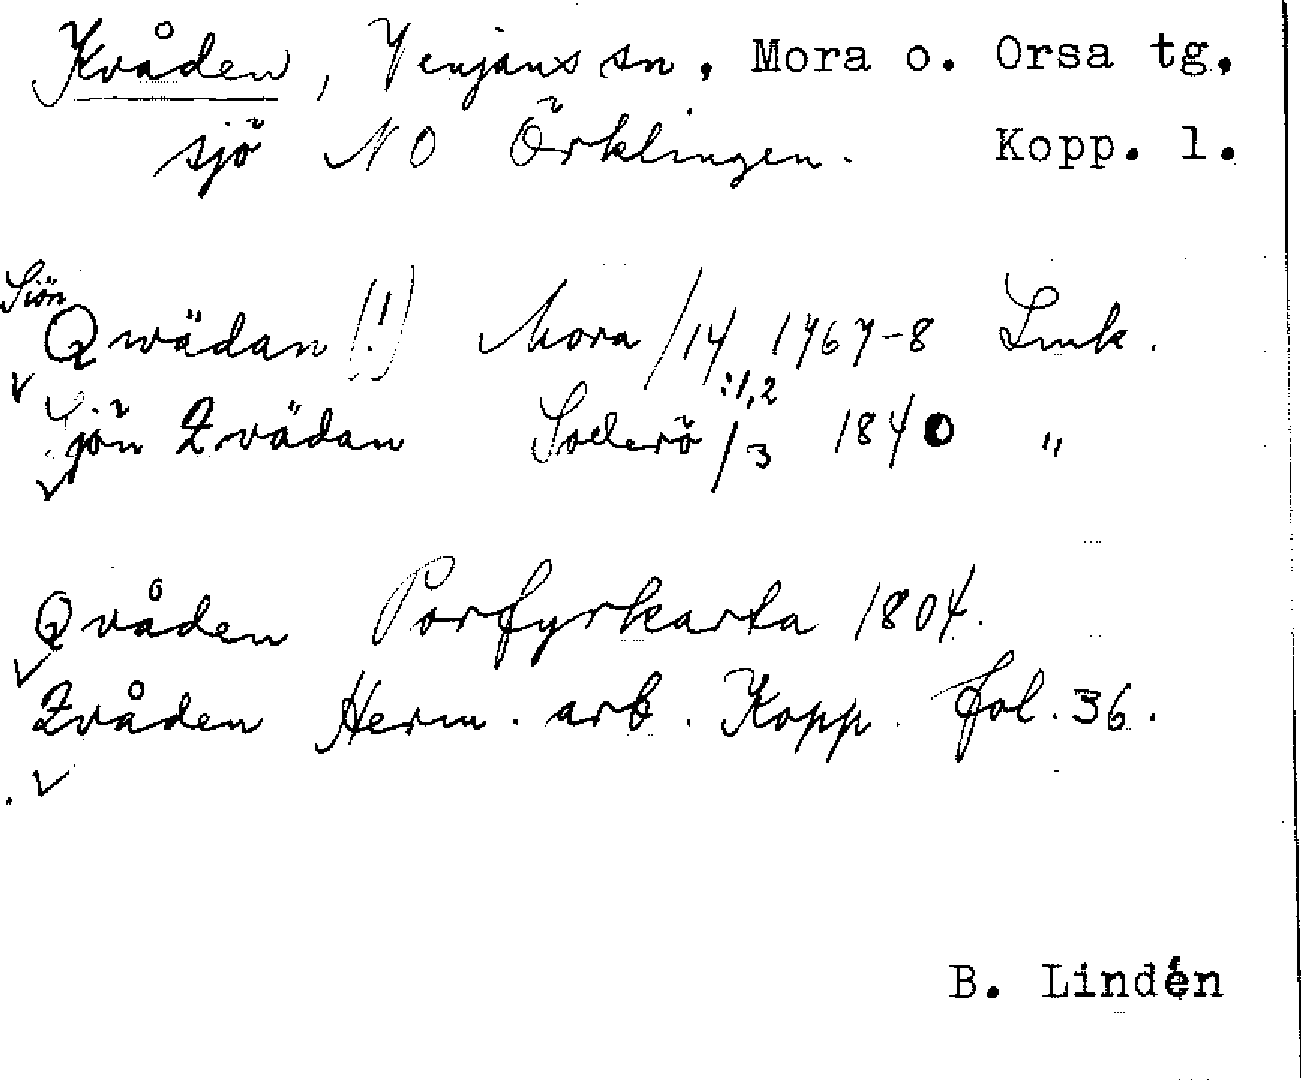 Kvåden, Venjans sn, Mora o. Orsa tg,
sjö NO Örklingen. Kopp. l.
Siön
Qwädan (!) Mora /14 1767-8 Lmk.
:1,2
Sjön Qvädan Sollerö /3 1840 "
Qvåden Porfyrkarta 1804.
Qvåden Herm. arb. Kopp. fol. 36.
B. Lindén